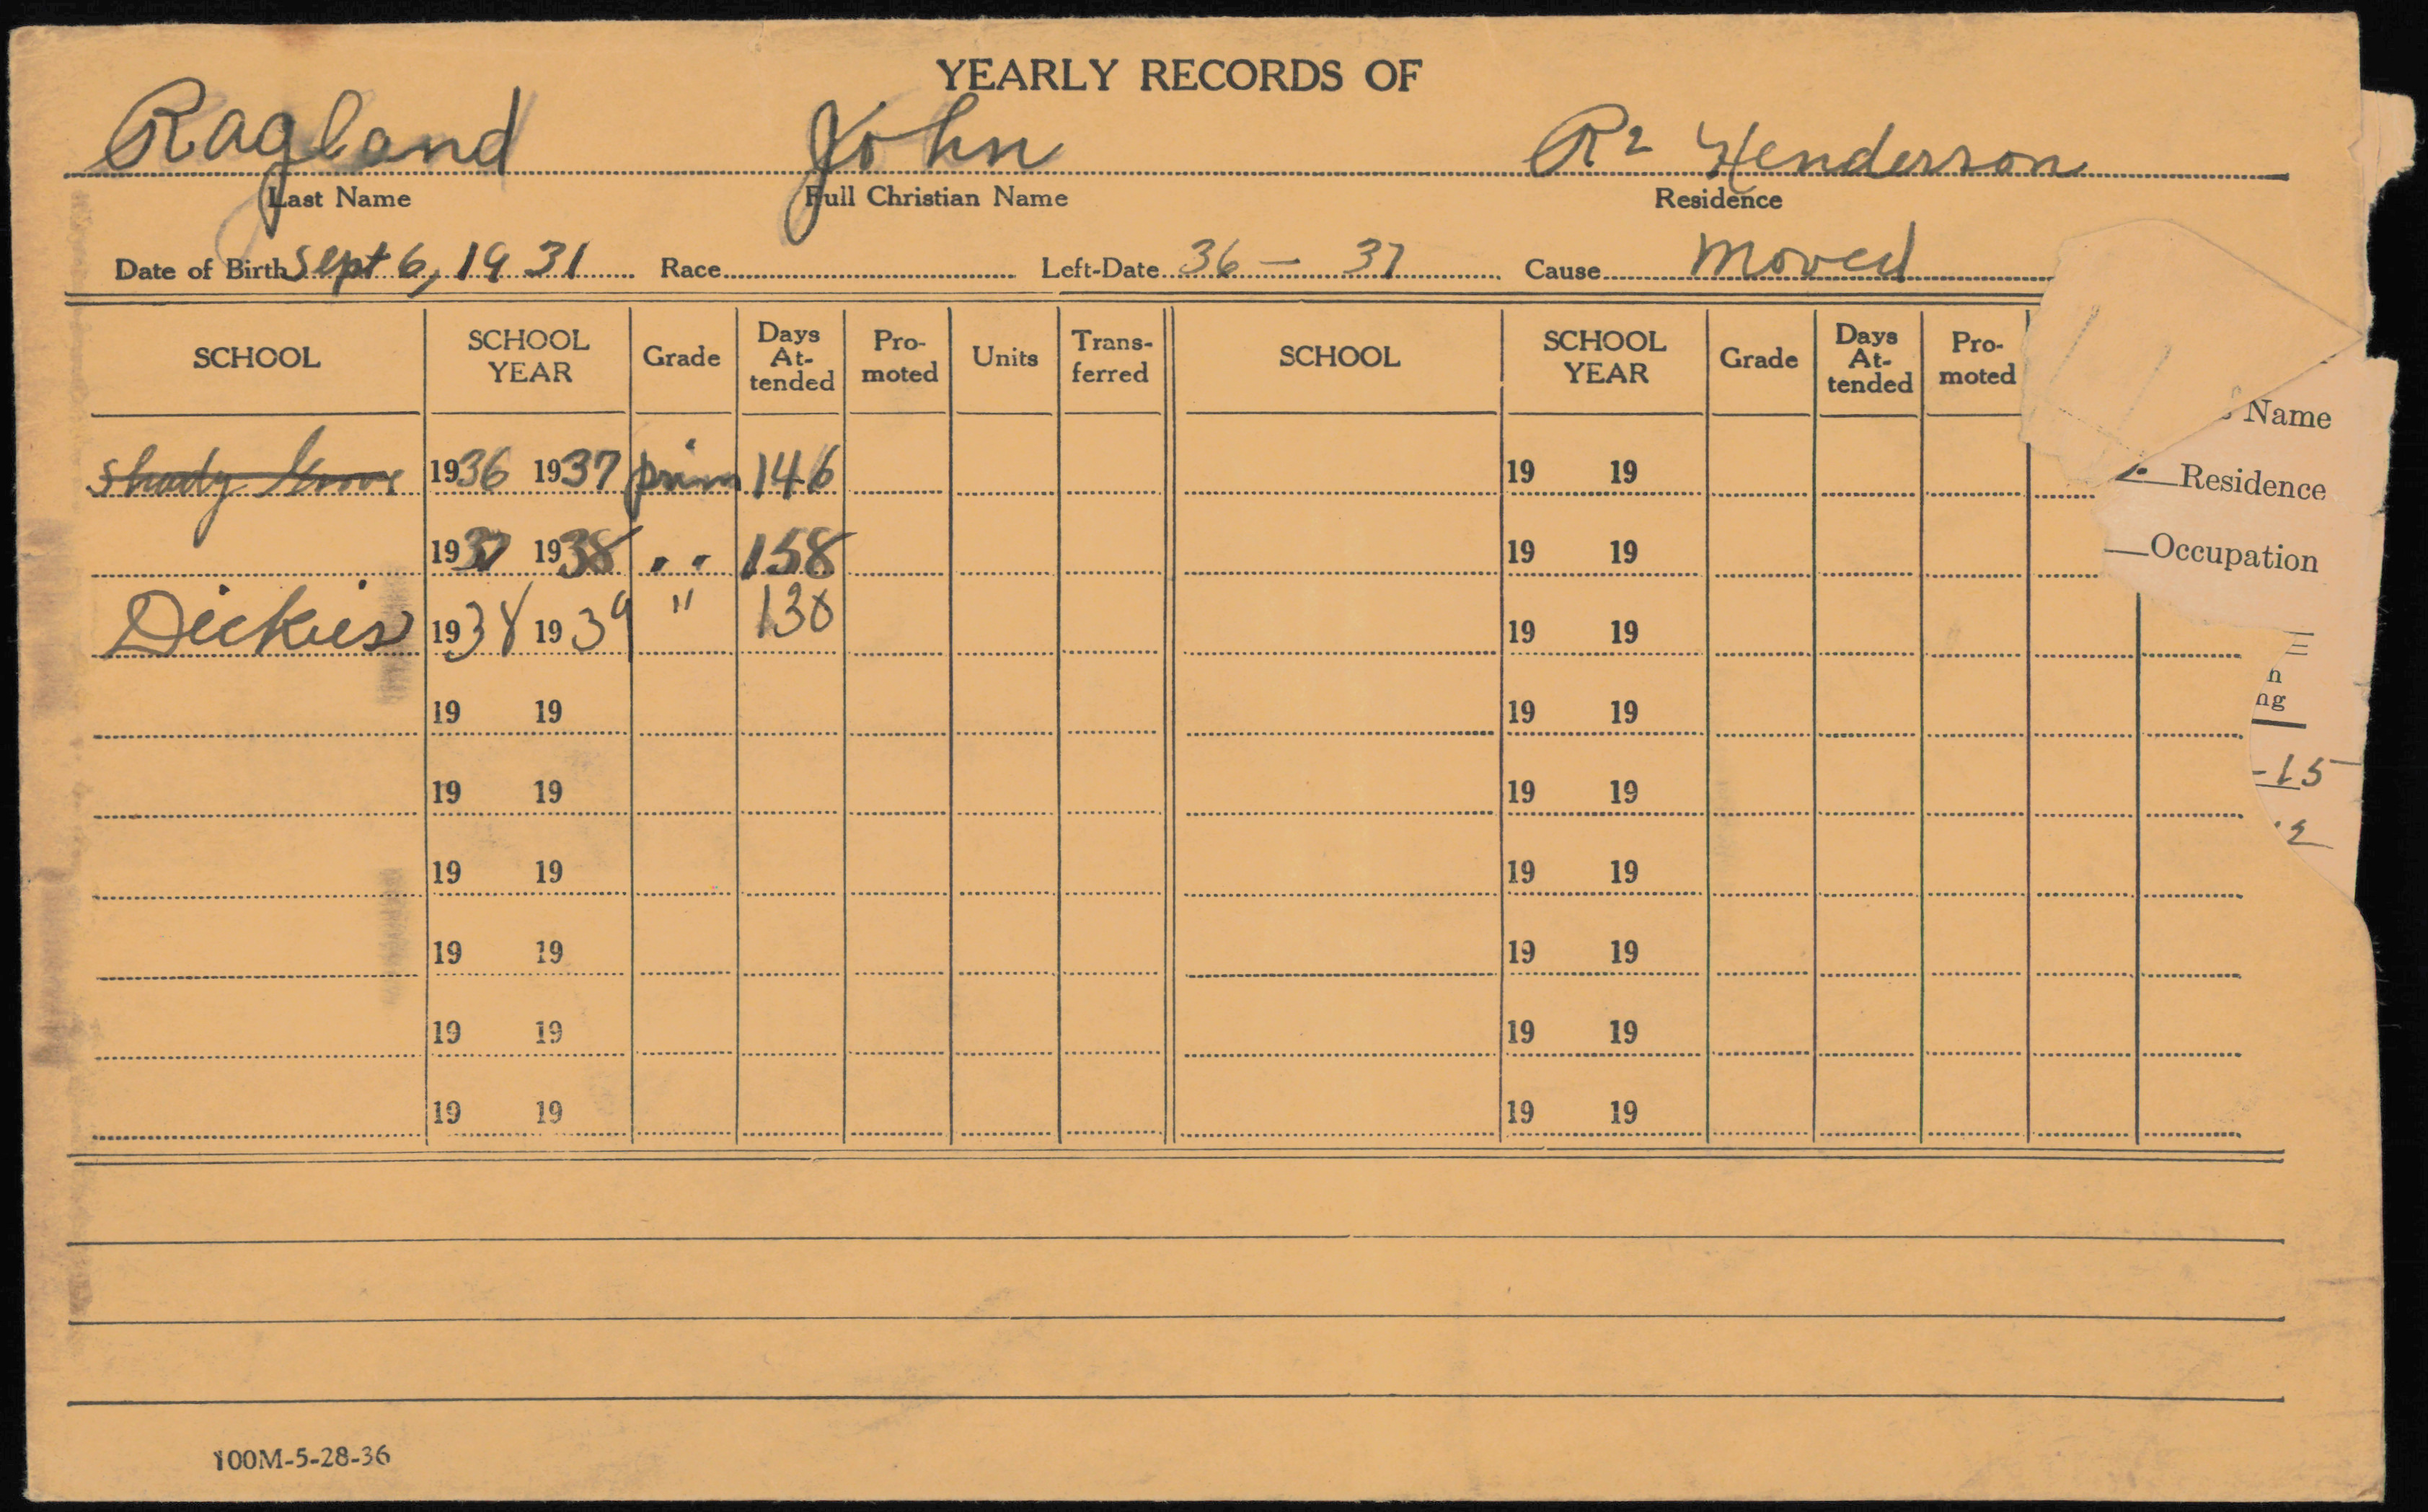 YEARLY RECORDS OF
Ragland John R2 Henderson
Last Name Full Christian Name Residence
Date of Birth Sept 6, 1931 Race Left-Date 36 — 37 Cause Moved
SCHOOL SCHOOL YEAR Grade Days At-tended Pro-moted Units Trans-ferred SCHOOL SCHOOL YEAR Grade Days At-tended Pro-moted
Name
Shady Grove 1936 1937 prim 146 19 19
Residence
1937 1938 " 158 19 19
Occupation
Dickies 1938 1939 " 130 19 19
19 19 19 19
ng
19 19 19 19
-15
19 19 19 19
19 19 19 19
19 19 19 19
19 19 19 19
100M-5-28-36